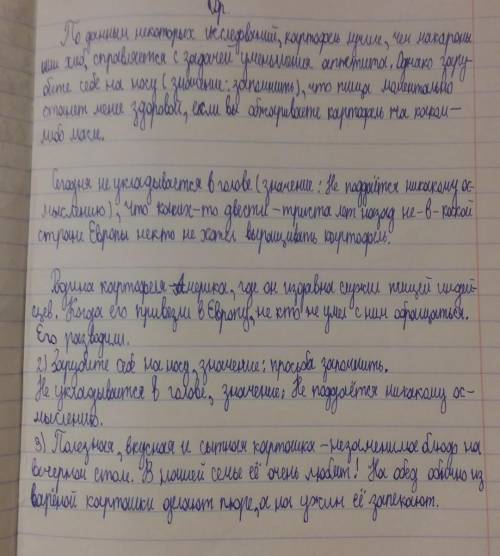 Др.
По данным некоторых исследований, картофель лучше, чем макароны
или хлеб, справляется с задачей уменьшения аппетита. Однако зару-
бите себе на носу (значение: запомнить), что пища моментально
станет менее здоровой, если вы обжариваете картофель на каком-
либо масле.
Сегодня не укладывается в голове (значение: Не поддаётся никакому ос-
мыслению), что каких-то двести-триста лет назад не-в-какой
стране Европы некто не хотел выращивать картофель.
Родина картофеля-Америка, где он издавна служил пищей индей-
цев. Когда его привезли в Европу, не кто не умел с ним обращаться.
Его разводили.
2) Зарубите себе на носу, значение: просьба запомнить.
Не укладывается в голове, значение: Не поддаётся никакому ос-
мыслению.
3) Полезная, вкусная и сытная картошка-незаменимое блюдо на
вечернем столе. В нашей семье её очень любят! На обед обычно из
варёной картошки делают пюре, а на ужин её запекают.